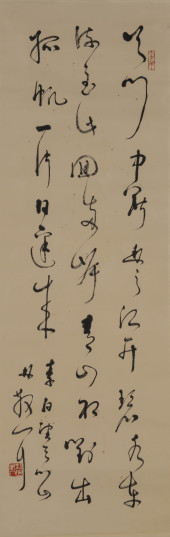 天門中斷楚江開碧水東
流至此回兩岸青山相對出
孤帆一片日邊來
李白望天門山
林散耳